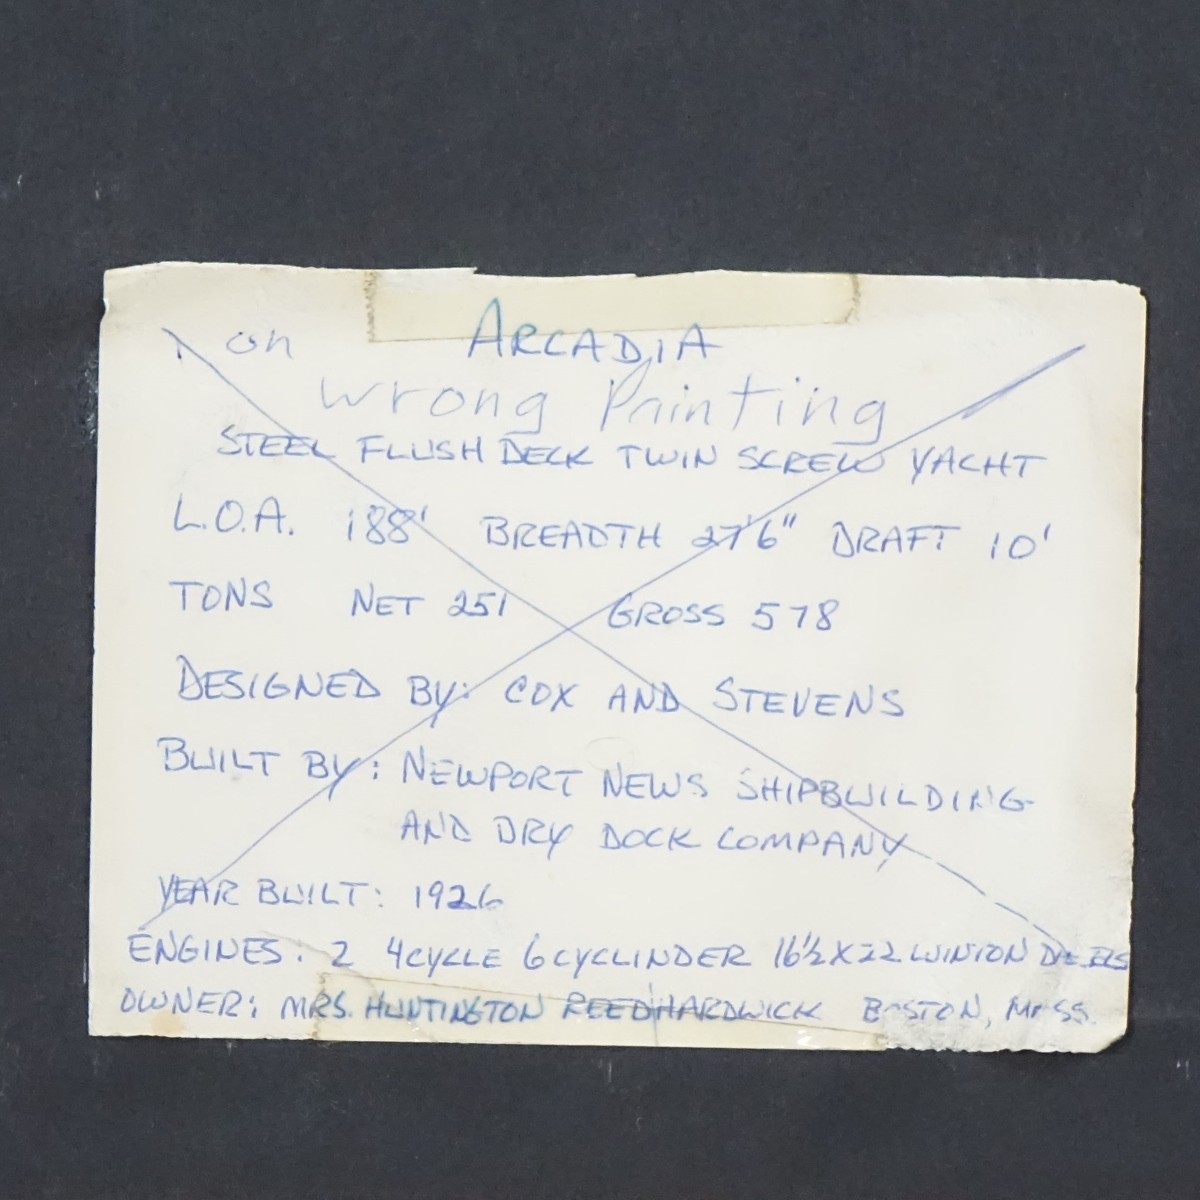 on ARCADIA
Wrong Painting
STEEL FLUSH DECK TWIN SCREW YACHT
L.O.A. 188' BREADTH 27'6" DRAFT 10'
TONS NET 251 GROSS 578
DESIGNED BY: COX AND STEVENS
BUILT BY: NEWPORT NEWS SHIPBUILDING
AND DRY DOCK COMPANY
YEAR BUILT: 1926
ENGINES: 2 4CYCLE 6CYCLINDER 16½X22 WINTON
OWNER: MRS. HUNTINGTON REEDHARDWICK BOSTON, MASS.